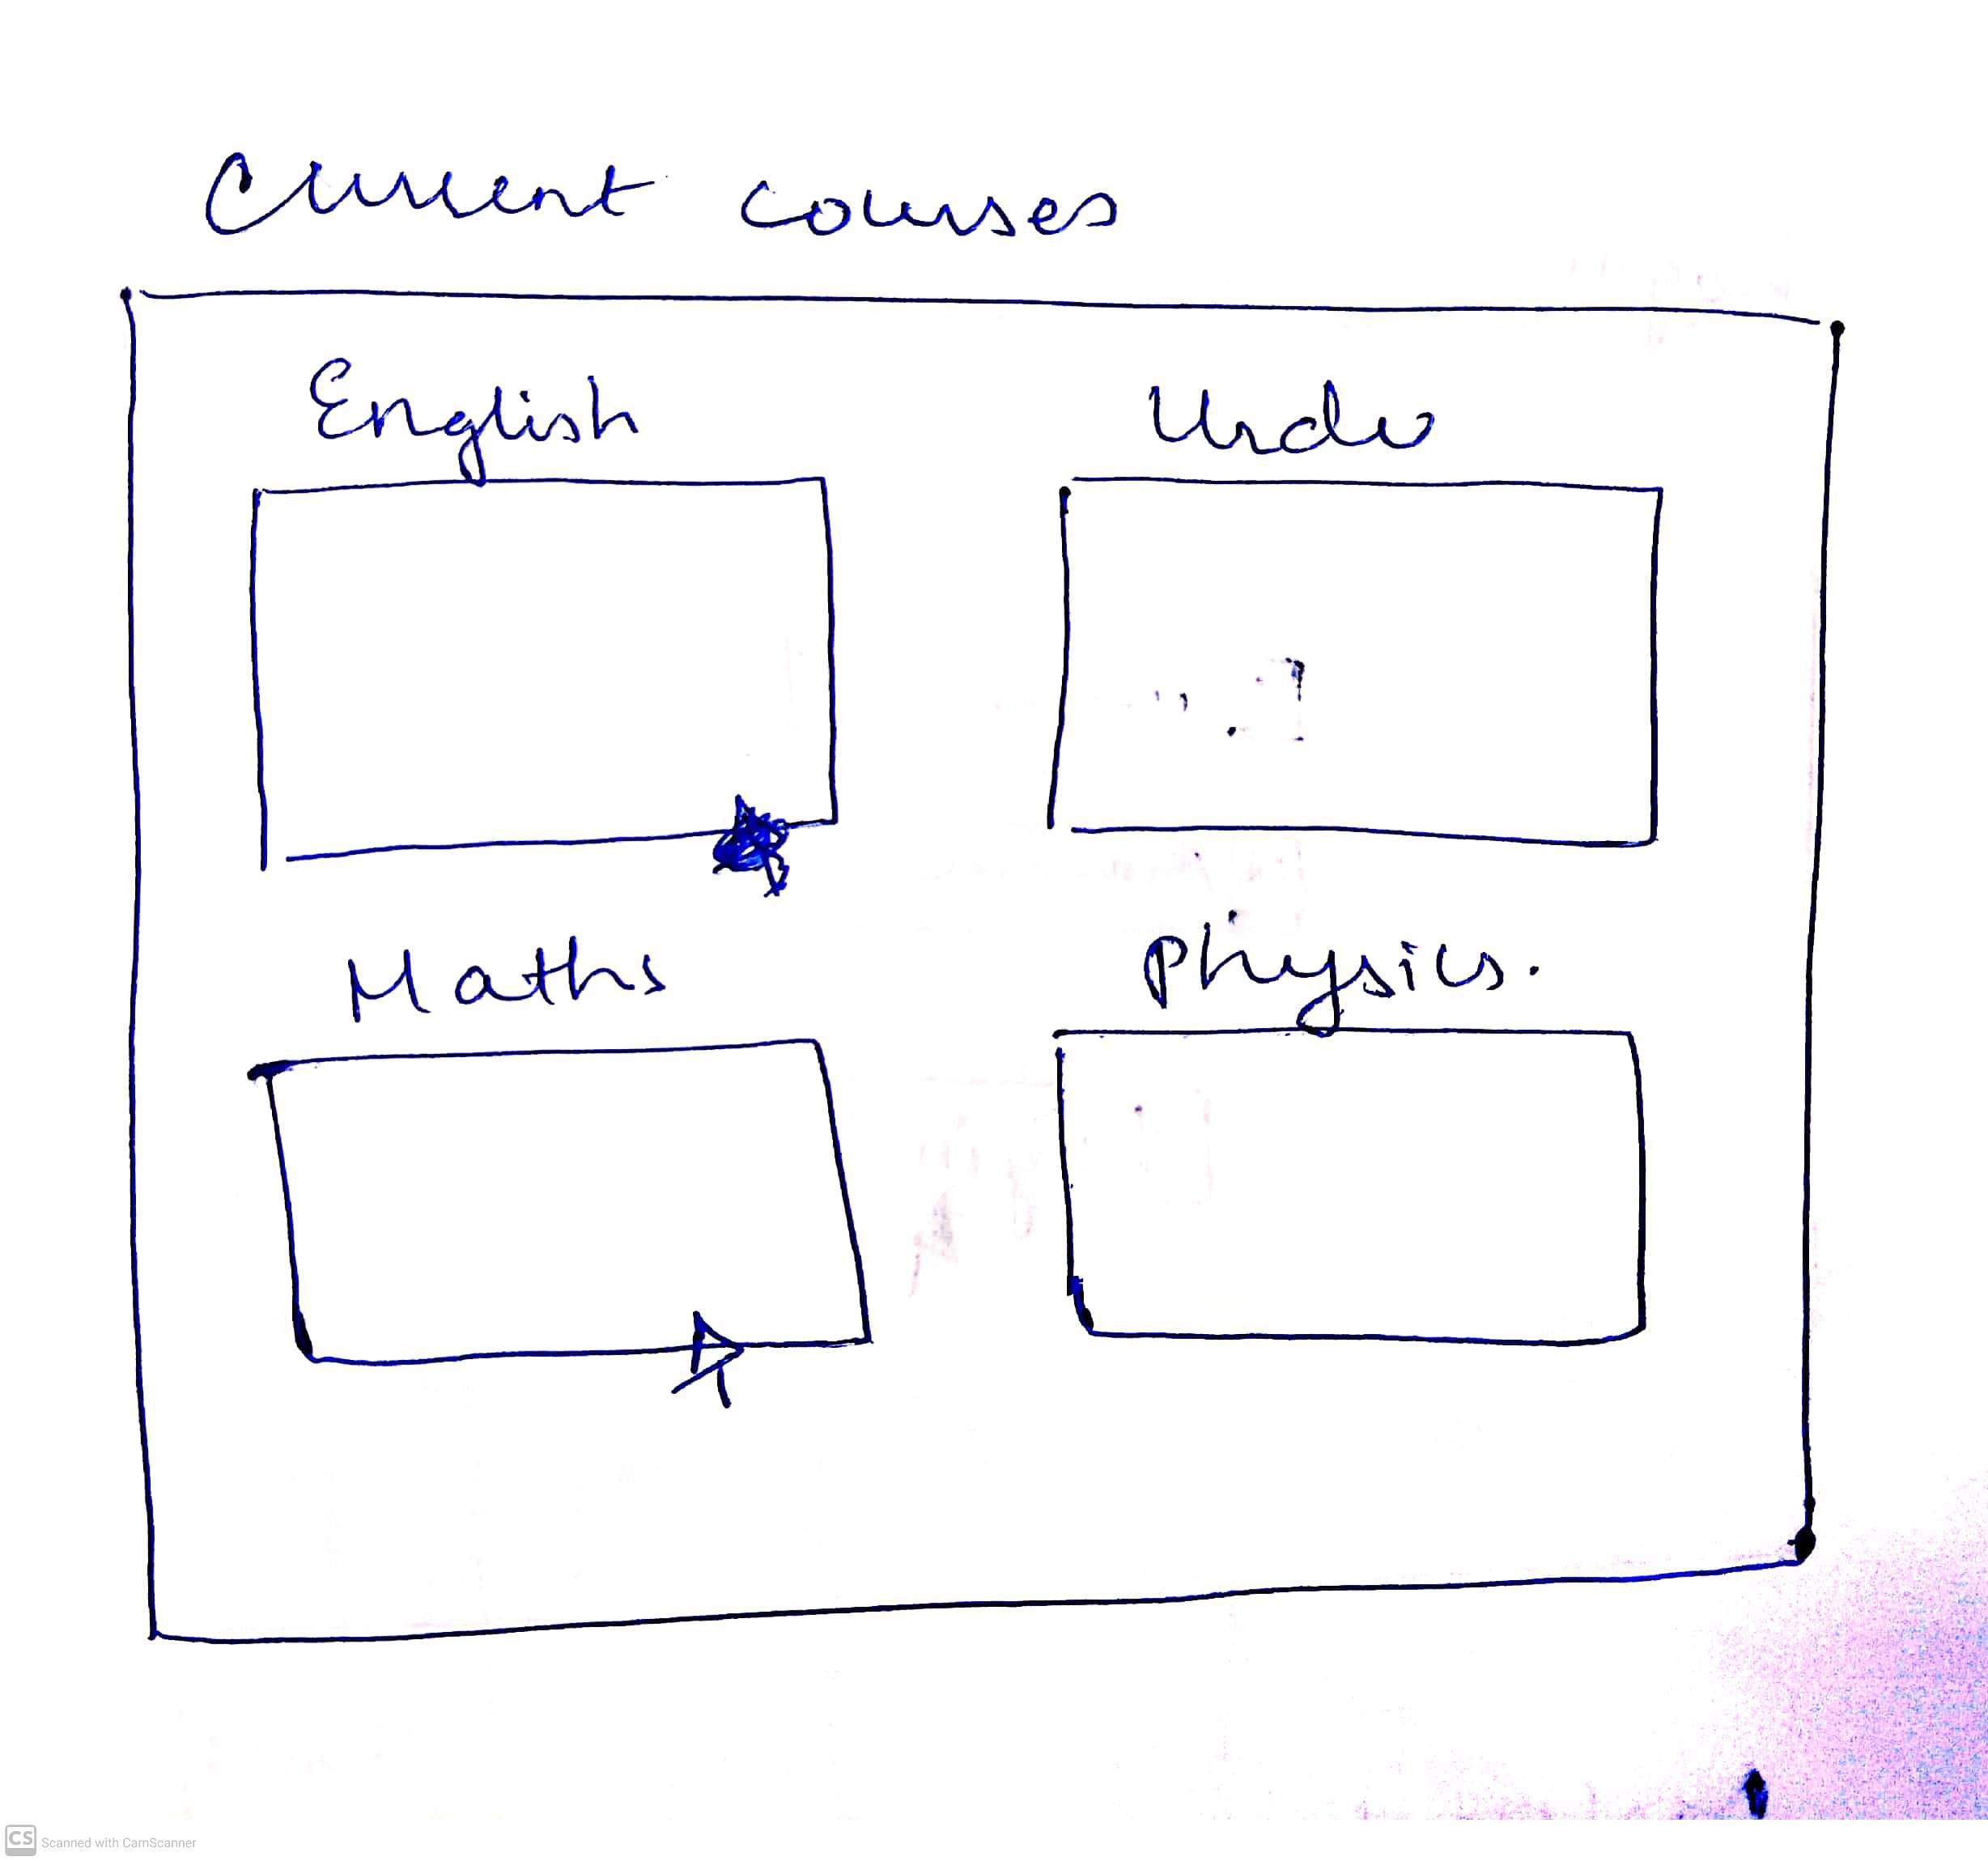 Current courses
English Urdu
Maths Physics.
CS Scanned with CamScanner